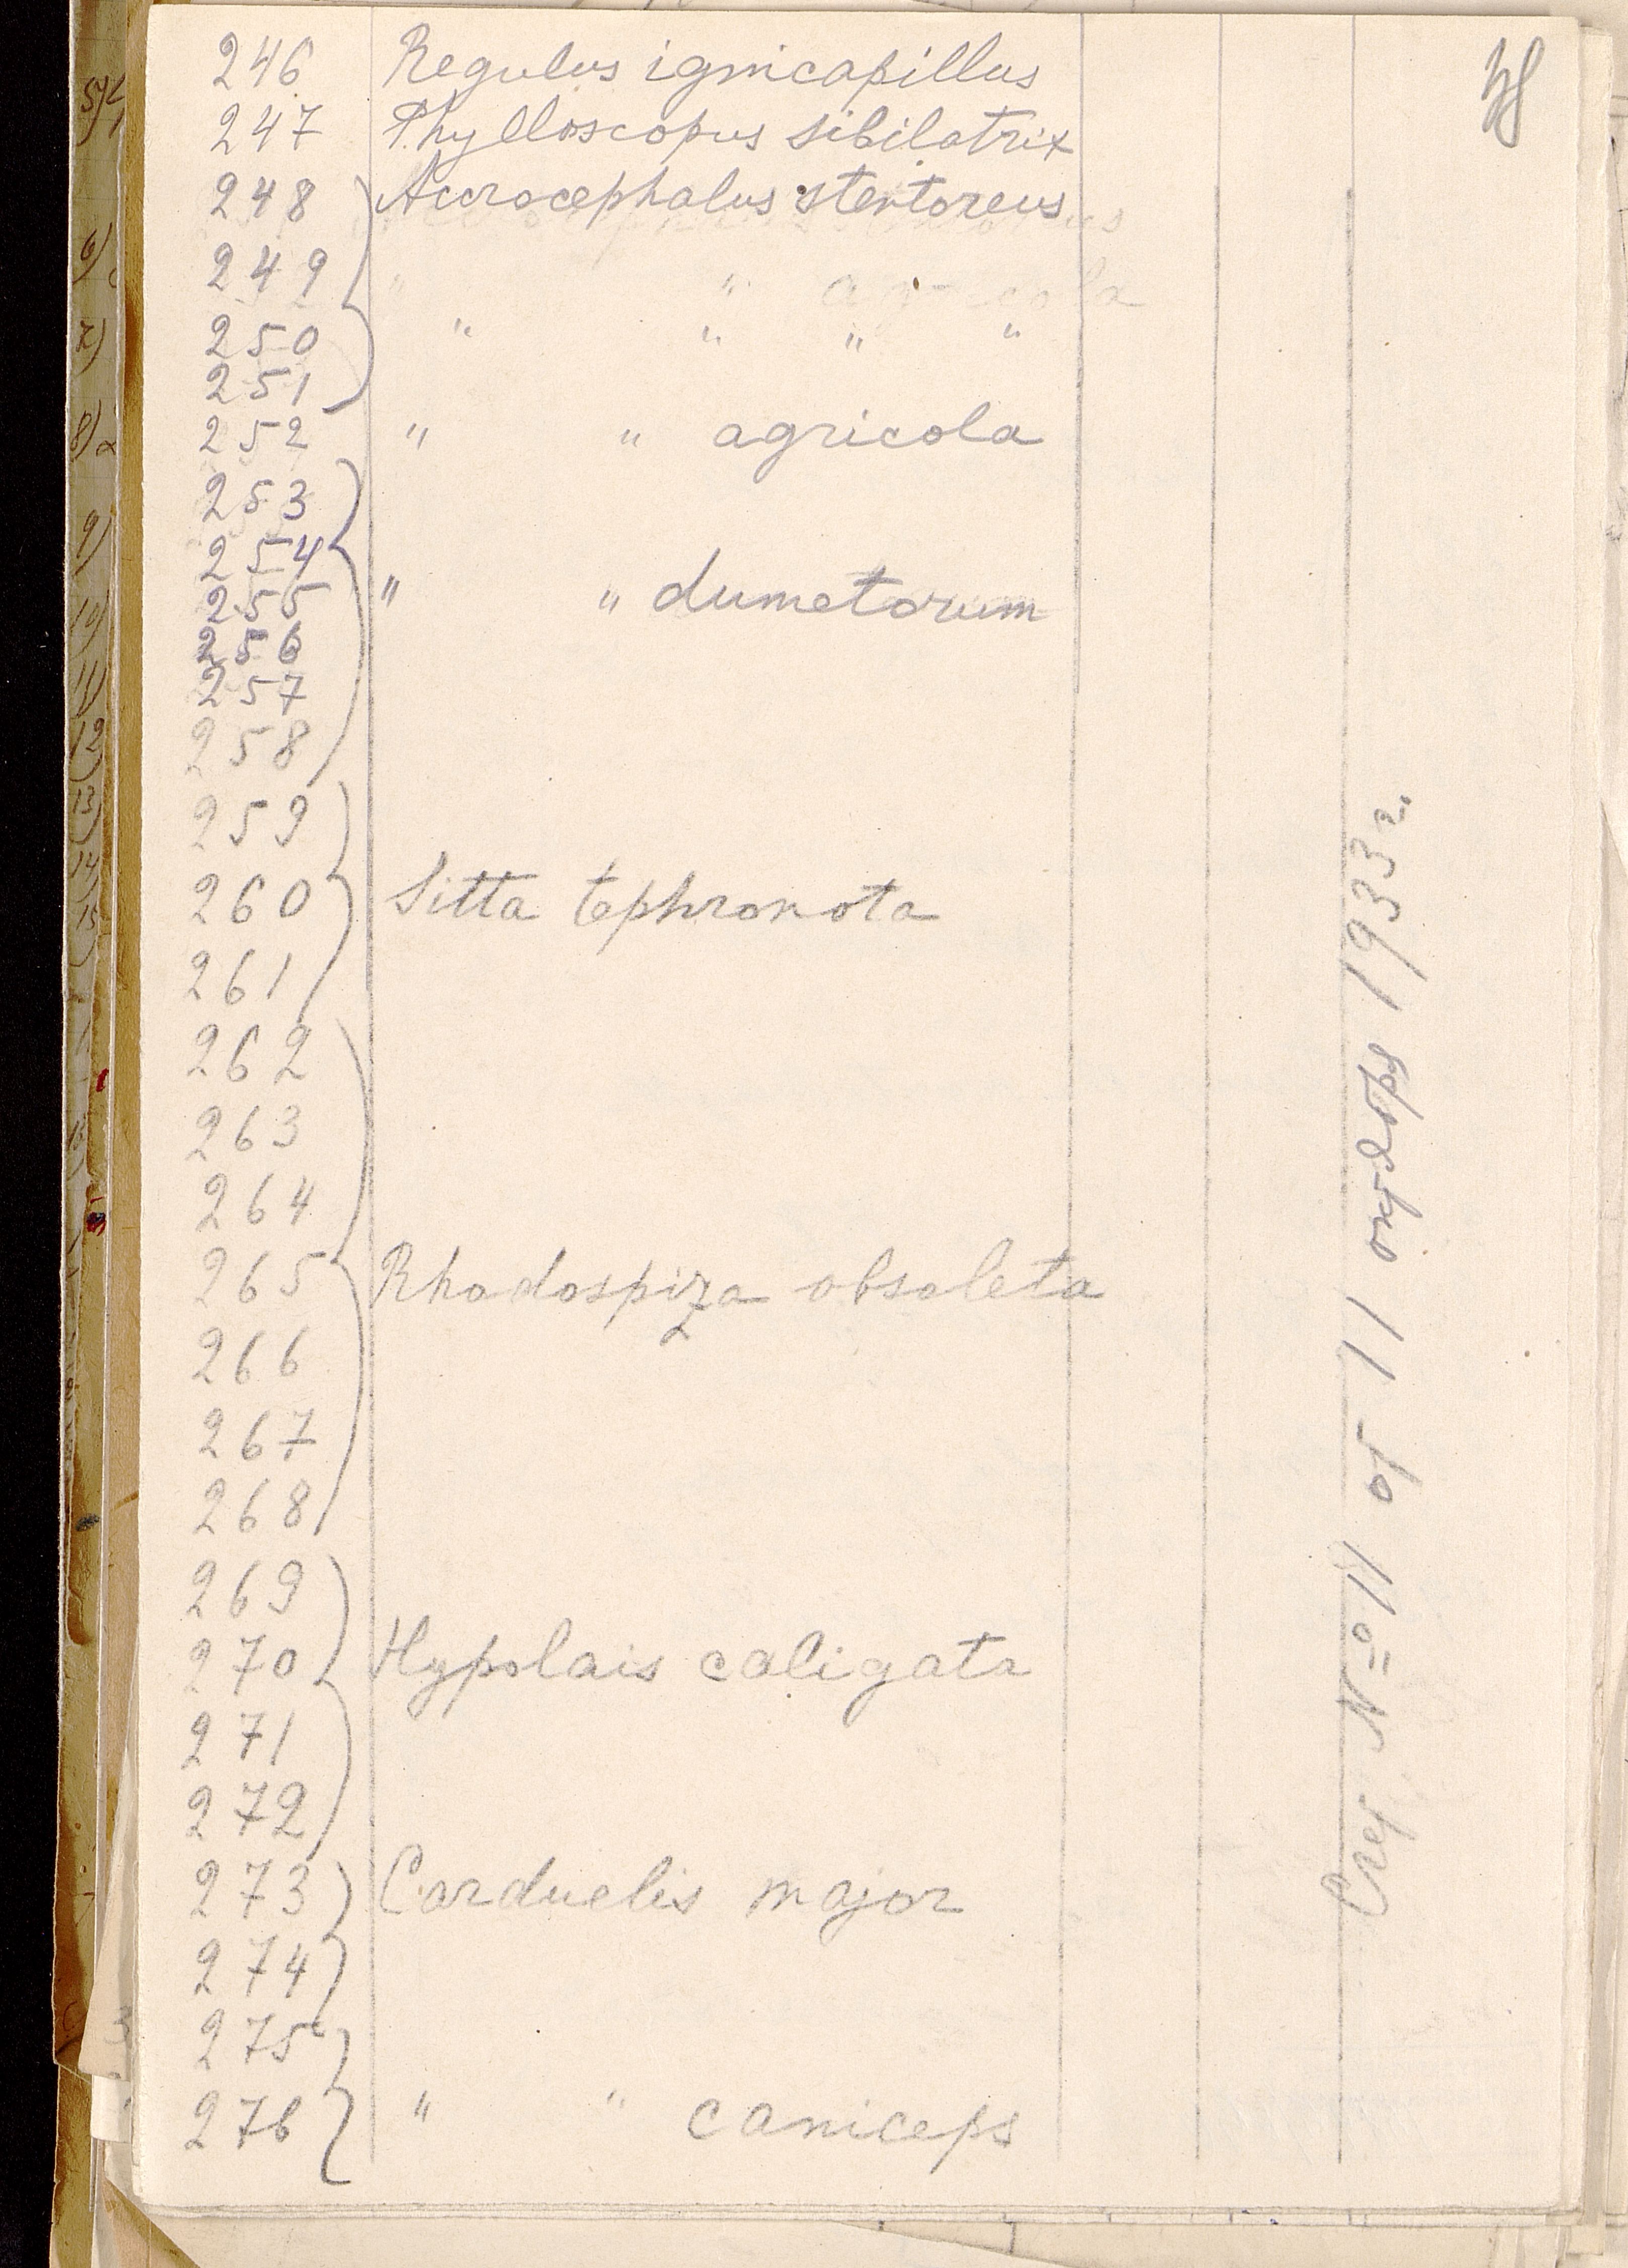 246 Regulus ignicapillus
247 Phylloscopus sibilatrix
248 Accrocephalus stentoreus
249 " " agricola
250 " " " "
251
252 " " agricola
253
254
255 " " dumetorum
256
257
258
259
260 Sitta tephronota
261
262
263
264
265 Rhodospiza obsoleta
266
267
268
269
270 Hypolais caligata
271
272
273 Carduelis major
274
275
276 " " caniceps
Счет №11 от 11 октября 1933 г.